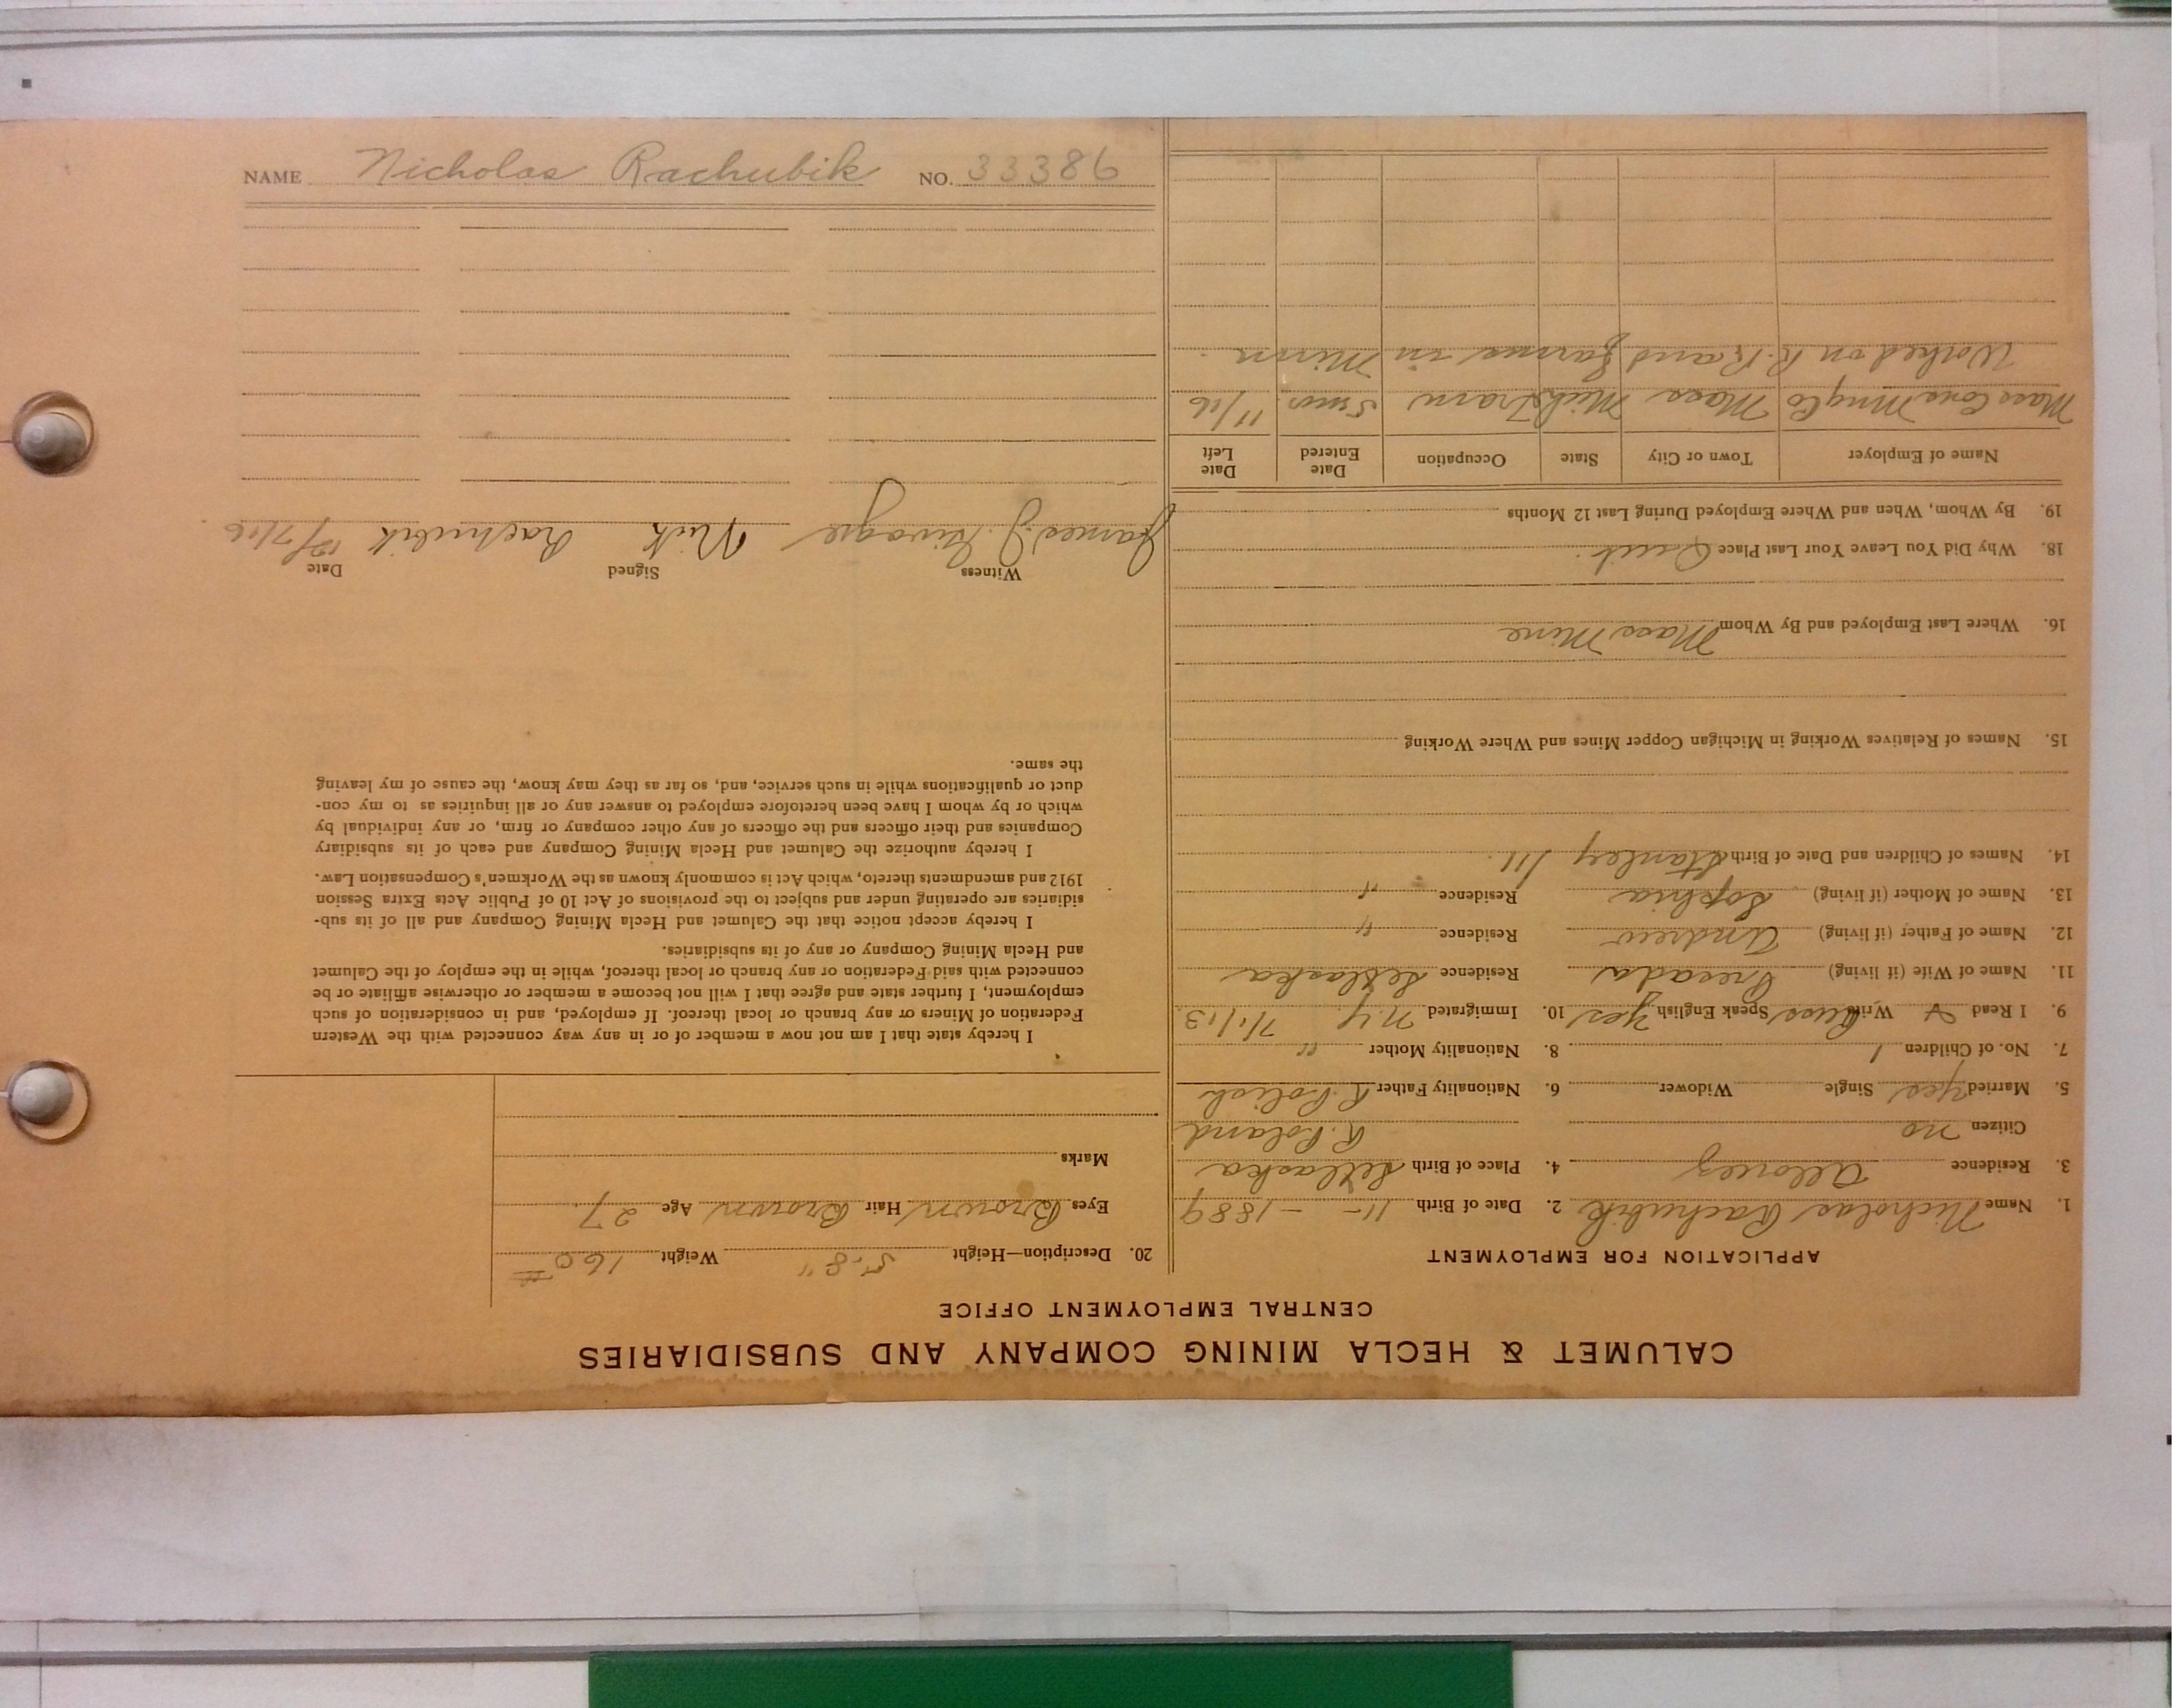 NAME Nicholas Rachubik NO. 33386
CALUMET & HECLA MINING COMPANY AND SUBSIDIARIES
CENTRAL EMPLOYMENT OFFICE
APPLICATION FOR EMPLOYMENT
1. Name Nicholas Rachubik 2. Date of Birth 11 - - 1889
3. Residence Allouez 4. Place of Birth
Citizen no R. Poland
5. Married Yes Single Widower 6. Nationality Father R. Polish
7. No. of Children 1 8. Nationality Mother "
9. I Read & Write Russ Speak English Yes 10. Immigrated N.Y. 7/1/13
11. Name of Wife (if living) Residence
12. Name of Father (if living) Andrew Residence "
13. Name of Mother (if living) Sophia Residence "
14. Names of Children and Date of Birth Stanley
15. Names of Relatives Working in Michigan Copper Mines and Where Working
16. Where Last Employed and By Whom Mass Mine
18. Why Did You Leave Your Last Place Quit.
19. By Whom, When and Where Employed During Last 12 Months
Name of Employer Town or City State Occupation Date Entered Date Left
Mass Cons Mng Co Mass Mich Tram 5 mos. 11/16
Worked on R. R and farms in Minn.
20. Description—Height 5-8" Weight 160 #
Eyes Brown Hair Brown Age 27
Marks
I hereby state that I am not now a member of or in any way connected with the Western
Federation of Miners or any branch or local thereof. If employed, and in consideration of such
employment, I further state and agree that I will not become a member or otherwise affiliate or be
connected with said Federation or any branch or local thereof, while in the employ of the Calumet
and Hecla Mining Company or any of its subsidiaries.
I hereby accept notice that the Calumet and Hecla Mining Company and all of its sub-
sidiaries are operating under and subject to the provisions of Act 10 of Public Acts Extra Session
1912 and amendments thereto, which Act is commonly known as the Workmen's Compensation Law.
I hereby authorize the Calumet and Hecla Mining Company and each of its subsidiary
Companies and their officers and the officers of any other company or firm, or any individual by
which or by whom I have been heretofore employed to answer any or all inquiries as to my con-
duct or qualifications while in such service, and, so far as they may know, the cause of my leaving
the same.
Witness Signed Date
James J. Nick Rachubik 12/7/16